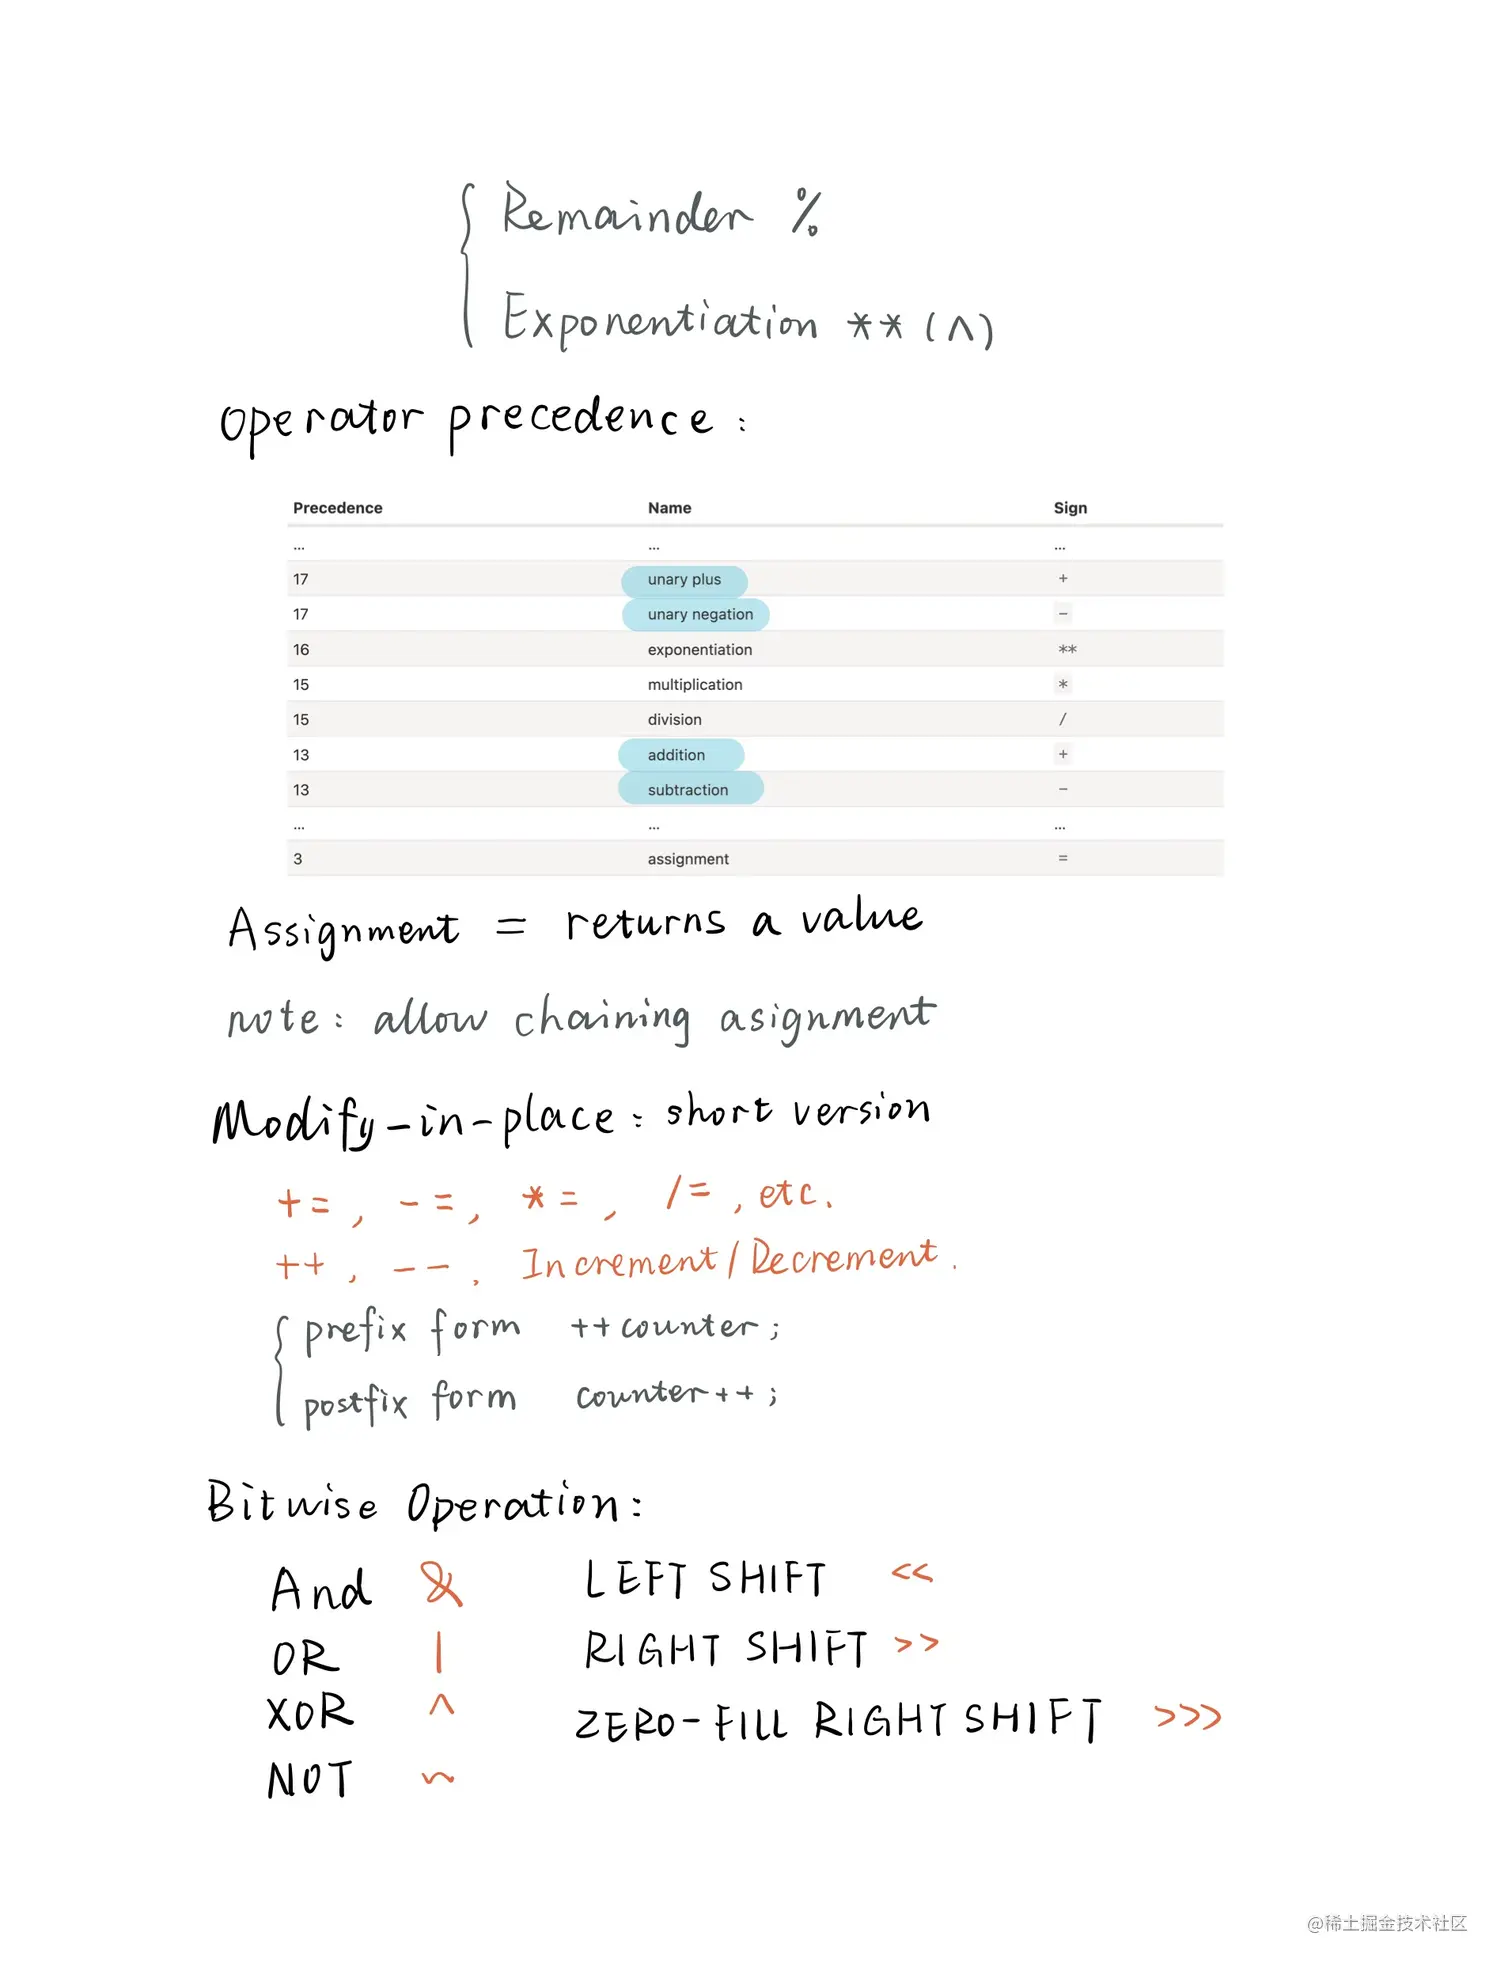 Remainder %
Exponentiation ** (^)
Operator precedence:
Precedence Name Sign
... ... ...
17 unary plus +
17 unary negation -
16 exponentiation **
15 multiplication *
15 division /
13 addition +
13 subtraction -
... ... ...
3 assignment =
Assignment = returns a value
note: allow chaining asignment
Modify-in-place: short version
+=, -=, *=, /=, etc.
++, --. Increment/Decrement.
prefix form ++counter;
postfix form counter++;
Bitwise Operation:
And & LEFT SHIFT <<
OR | RIGHT SHIFT >>
XOR ^ ZERO-FILL RIGHT SHIFT >>>
NOT ~
@稀土掘金技术社区